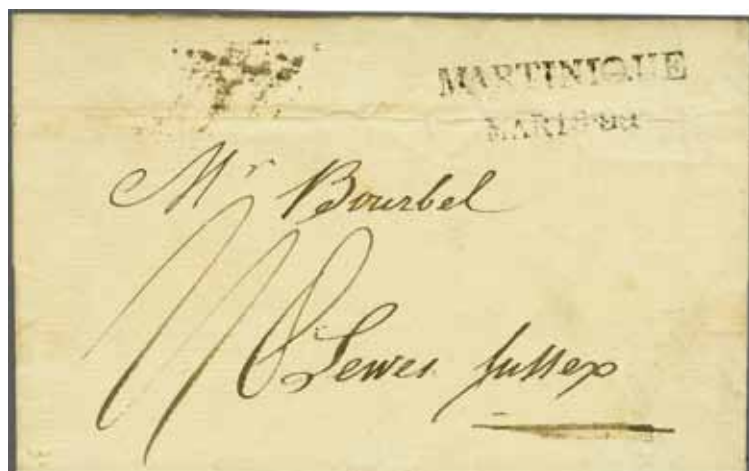 MARTINIQUE
Mr Bourbel
Lewes Sussex